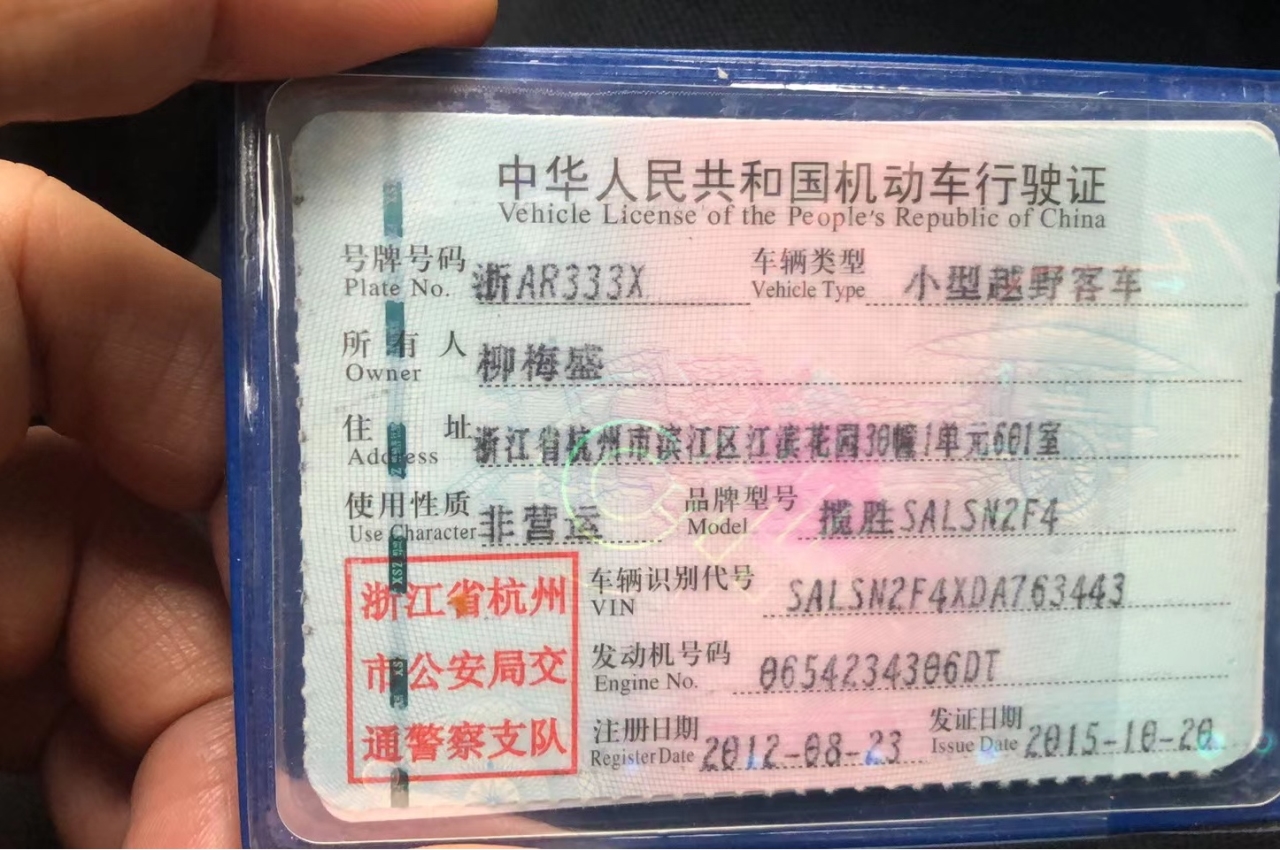 中华人民共和国机动车行驶证
Vehicle License of the People's Republic of China
号牌号码 浙AR333X 车辆类型 小型越野客车
Plate No. Vehicle Type
所有人 柳梅盛
Owner
住址 浙江省杭州市滨江区江滨花园30幢1单元601室
Address
使用性质 非营运 品牌型号 揽胜SALSN2F4
Use Character Model
浙江省杭州
市公安局交
通警察支队
车辆识别代号 SALSN2F4XDA763443
VIN
发动机号码 0654234306DT
Engine No.
注册日期 2012-08-23 发证日期 2015-10-20
Register Date Issue Date